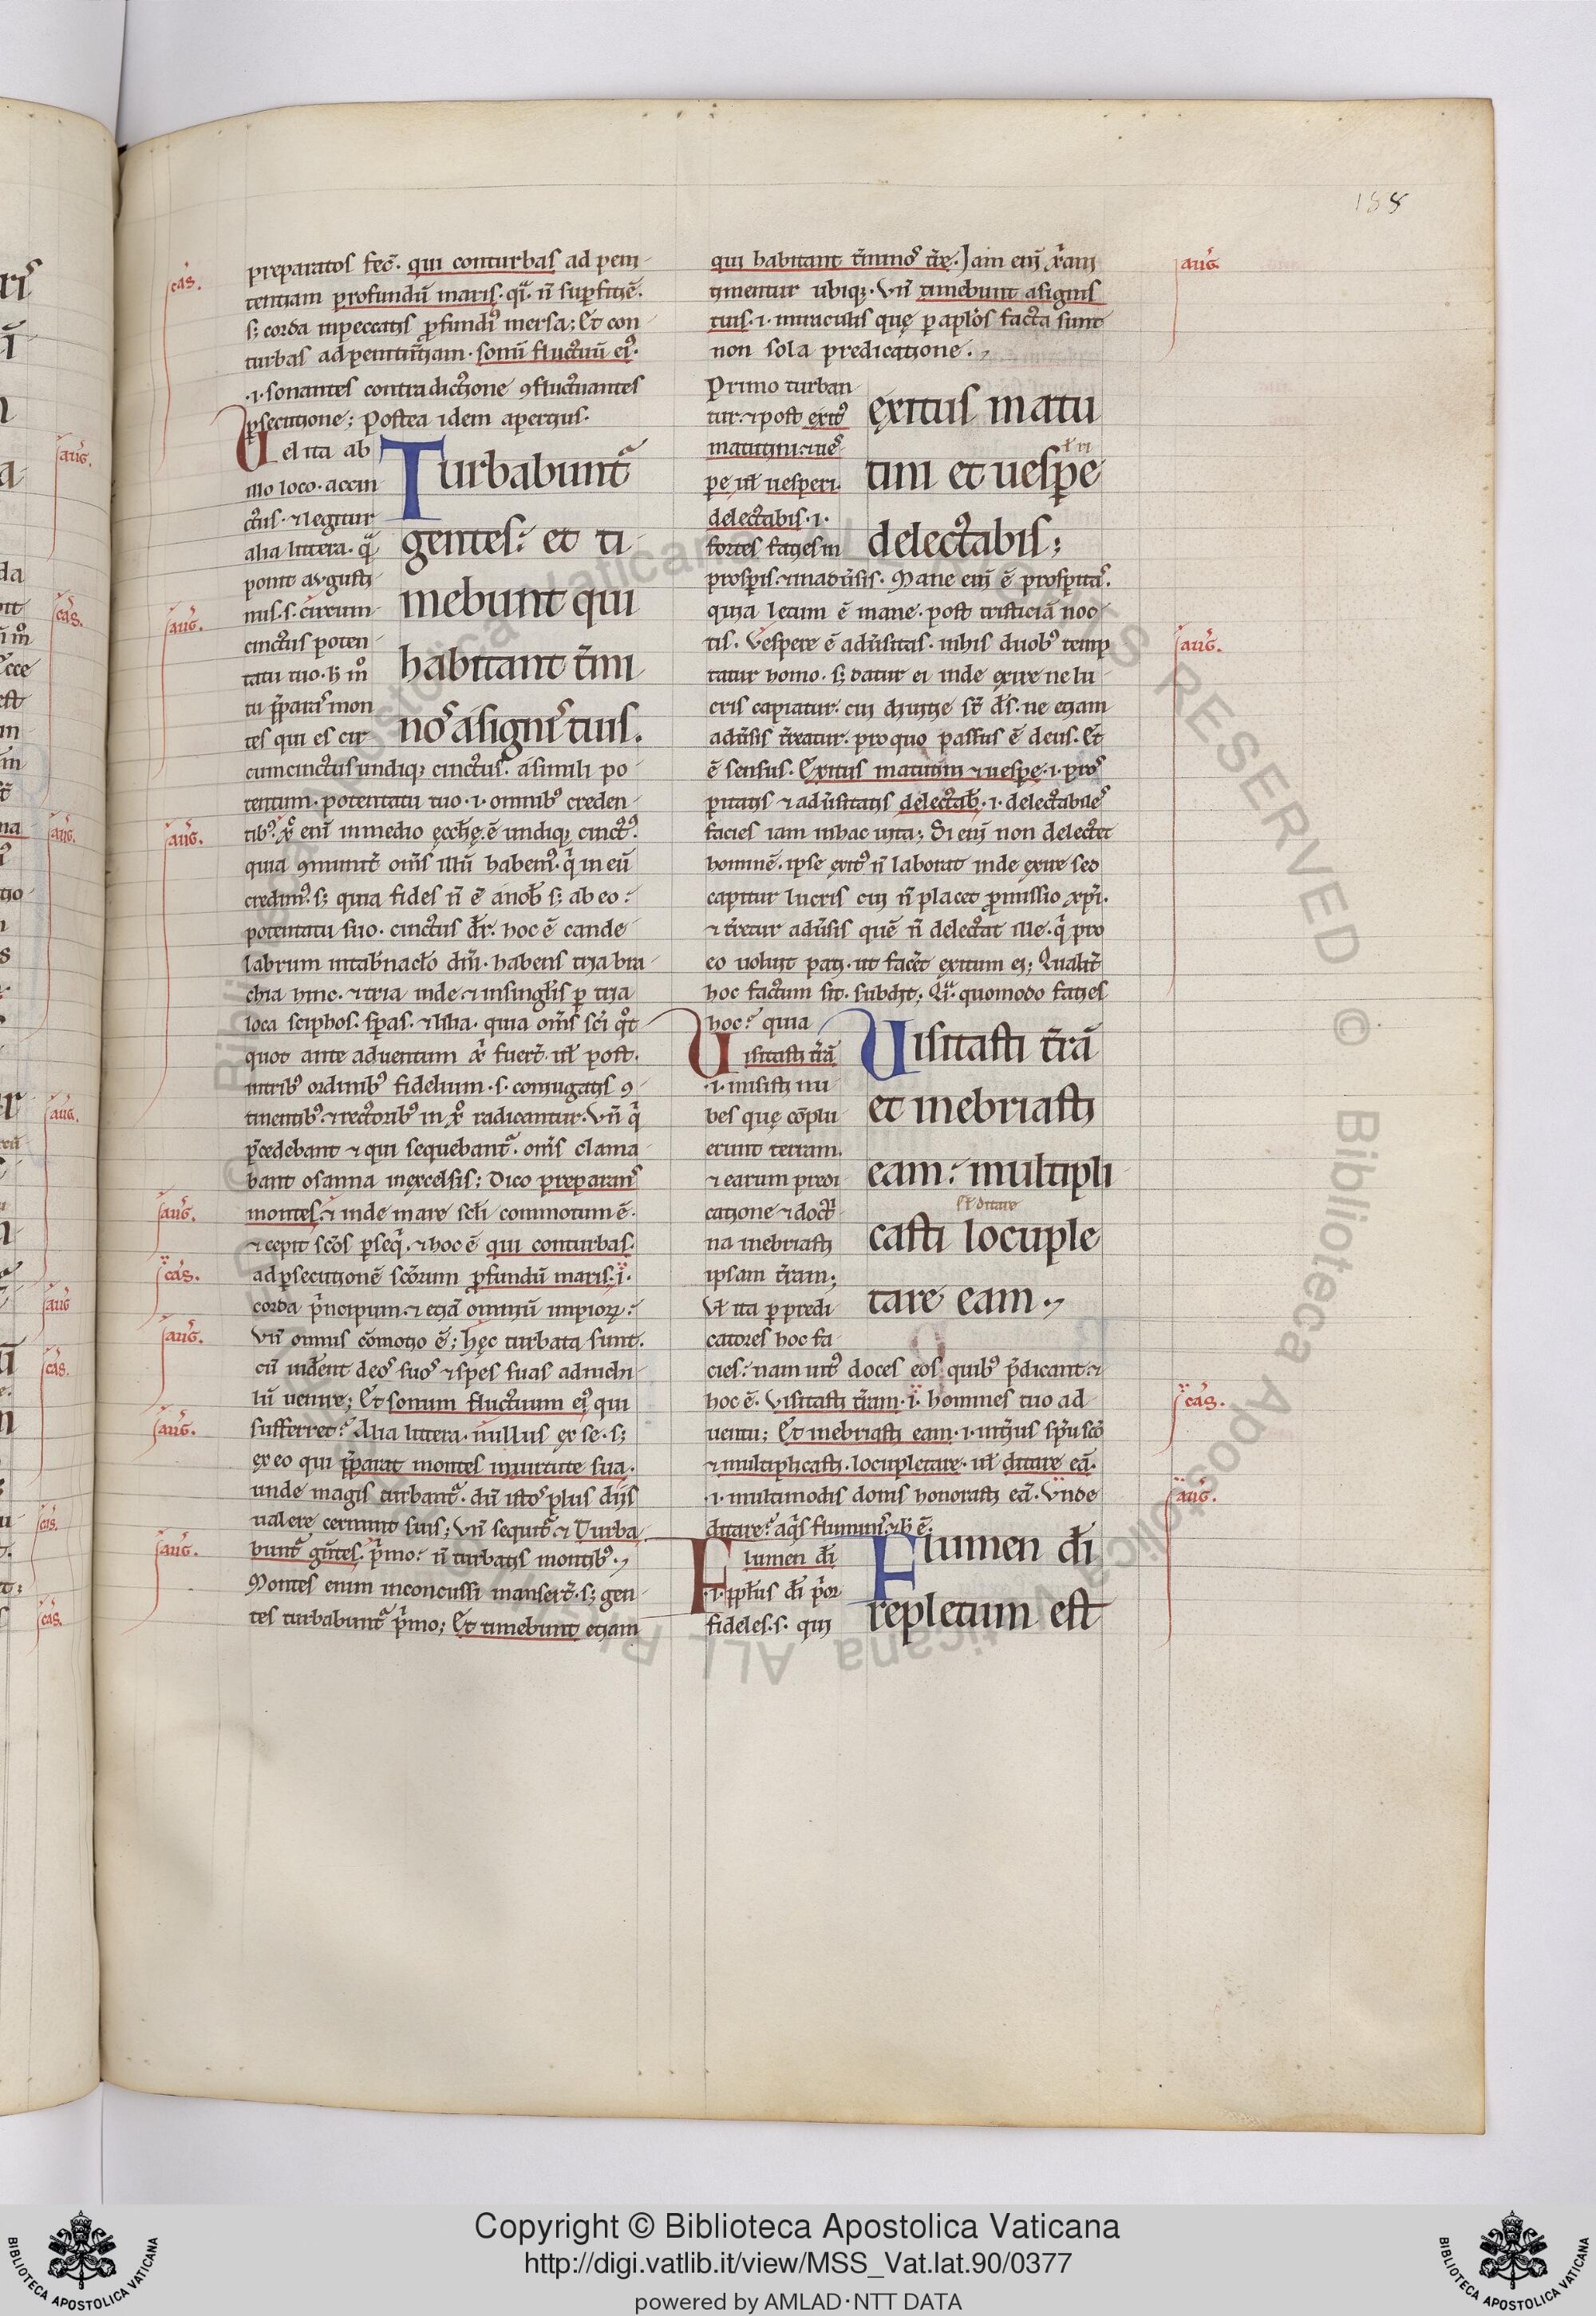 188
cas.
preparatos fec̄. qui conturbas ad peni-
tentiam profundū maris. qͥ. n̄ sup̄fitiē.
s; corda inpeccatis p̄fundiꝰ mersa; Et con-
turbas ad penitn̄tiam. sonū fluctuū eiꝰ.
.i. sonantes contradictione ꝯfluctuantes
p̄secutione; Postea idem apertius.
Vel ita ab
illo loco. accin-
ctus. ⁊ legitur
alia littera. qͣ
ponit augusti-
nus. s. circum-
cinctus poten-
tatu tuo. h̄ mͦ
tu p̄paras mon-
tes qui es cir-
cumcinctus undiqꝫ cinctus. a simili po-
tentum. potentatu tuo. i. omnibꝰ creden-
tibꝰ. xp̄c eni in medio ecclīę. ē undiqꝫ cinctꝰ.
quia ꝯmunit̄ om̄s illū habemꝰ. qͥ in eū
credimꝰ. s; quia fides n̄ ē a nob̄ s; ab eo:
potentatu suo. cinctus dr̄. hoc ē cande-
labrum intabn̄aclo dn̄i. habens tria bra-
chia hinc. ⁊ tria inde ⁊ insingl̄is p tria
loca sciphos. sp̄as. ⁊ lilia. quia om̄s sc̄i qͦt
quot ante aduentum xp̄i fuer̄t. ul̄ post.
intribꝰ ordinibꝰ fidelium. s. coniugatis ꝯ-
tinentibꝰ. ⁊ rectoribꝰ in xp̄o radicantur. Vn̄ qͥ
p̄cedebant ⁊ qui sequebant̄. om̄s clama-
bant osanna inexcelsis; Dico preparans
montes. ⁊ inde mare scl̄i commotum ē.
⁊ cepit sc̄os p̄seqͥ. ⁊ hoc ē qui conturbas.
ad p̄secutionē sc̄orum p̄fundū maris. i.
corda p̄ncipum. ⁊ etiā omniū impioꝝ:
vn̄ omnis cōmotio ē; hęc turbata sunt.
cū uident deos suos ⁊ spes suas adnichi-
lū uenire; Et sonum fluctuum eiꝰ qui
sufferret? Alia littera. nullus ex se. s;
ex eo qui p̄parat montes in uirtute sua.
unde magis turbant̄. dū istos plus diis
ualere cernunt suis; Vn̄ sequit̄. ⁊ Turba-
bunt̄ gn̄tes. p̄mo: n̄ turbatis montibꝰ.
Montes enim inconcussi manser̄t. s; gen-
tes turbabunt̄ p̄mo; Et timebunt etiam
Turbabunt̄
gentes: et ti-
mebunt qui
habitant t̄mi-
nos a signis tuis.
aug.
aug.
aug.
cas.
aug.
aug.
aug.
qui habitant t̄minos tr̄e. Jam eni xp̄iani
timentur ubiqꝫ. Vn̄ timebunt a signis
tuis. i. miraculis quę p aplōs facta sunt
non sola predicatione.
Primo turban-
tur. ⁊ post exitꝰ
matutini. ⁊ ues-
pe ul̄ uesperi.
delectabis. i.
fortes facies in
prosp̄is. ⁊ in adūsis. Mane eni ē prosp̄itas.
quia letum ē mane. post tristiciā noc-
tis. Vespere ē adūsitas. inhis duobꝰ temp-
tatur homo. s; datur ei inde exire ne lu-
cris capiatur. cui diuitie st̄ ds̄. ne etiam
adūsis tr̄eatur. pro quo passus ē deus. Et
ē sensus. Exitus matutini ⁊ uespe. i. pros-
pitatis ⁊ adūsitatis delectab̄. i. delectabiles
facies iam inhac uita; Si eni non delectet
hominē. ipse exitꝰ n̄ laborat inde exire sed
capitur lucris cui n̄ placet p̄missio xp̄i.
⁊ tr̄etur adūsis quē n̄ delectat ille. qͥ pro
eo uoluit pati. ut facēt exitum ei; Qualit̄
hoc factum sit. subdit; Qͥ. quomodo facies
hoc? quia
Visitasti tr̄ā
.i. misisti nu-
bes quę cōplu-
erunt terram.
⁊ earum predi-
catione ⁊ doctͥ-
na inebriasti
ipsam tr̄am;
Ul̄ ita p predi-
catores hoc fa-
cies: nam intꝰ doces eos quibꝰ p̄dicant. ⁊
hoc ē. Visitasti tr̄am. i. homines tuo ad-
uentu; Et inebriasti eam. i. intius sp̄u sc̄o
⁊ multiplicasti. locupletare. ul̄ ditare eā.
.i. multimodis donis honorasti eā. Vnde
ditare? aqͥs fluminis. ⁊ h̄ ē.
Flumen dī
.i. pp̄lus dī p̄or
fideles. s. qui
exitus matu-
tini et uespe
ul̄ ri
delectabis;
Visitasti tr̄ā
et inebriasti
eam: multipli-
ul̄ ditare
casti locuple-
tare eam.
Flumen dī
repletum est
aug.
aug.
cas.
aug.
© Biblioteca Apostolica Vaticana ALL RIGHTS RESERVED © Biblioteca Apostolica Vaticana ALL RIGHTS RESERVED
Copyright © Biblioteca Apostolica Vaticana
http://digi.vatlib.it/view/MSS_Vat.lat.90/0377
powered by AMLAD·NTT DATA
BIBLIOTECA APOSTOLICA VATICANA
BIBLIOTECA APOSTOLICA VATICANA